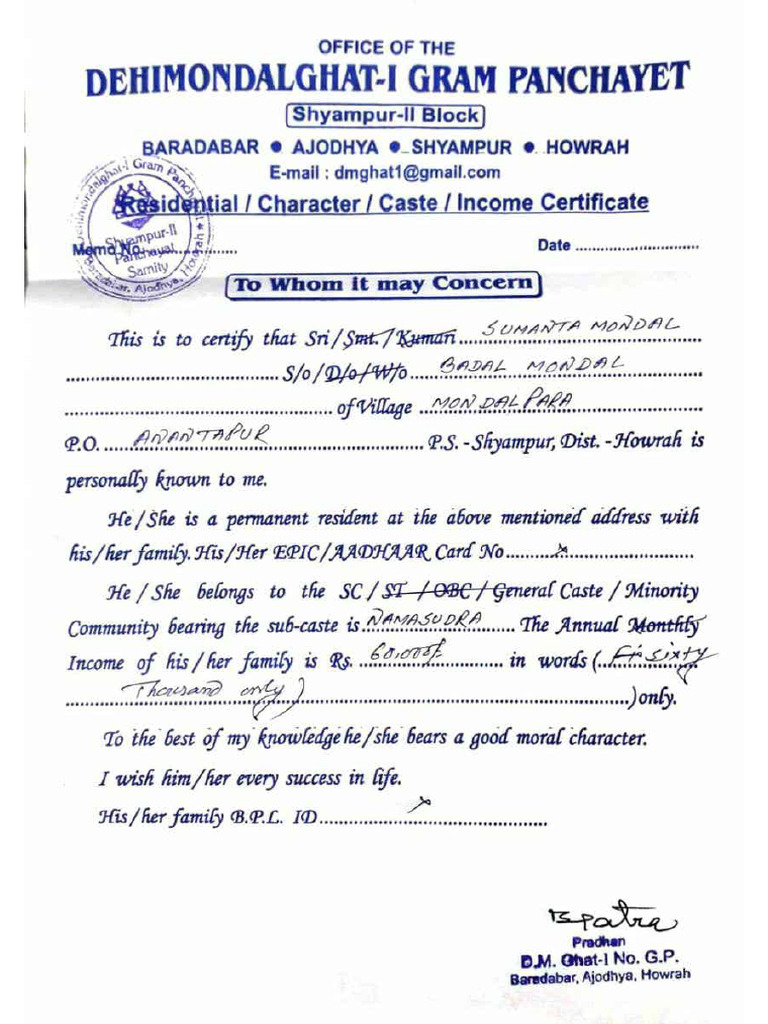 OFFICE OF THE
DEHIMONDALGHAT-I GRAM PANCHAYET
Shyampur-II Block
BARADABAR ● AJODHYA ● SHYAMPUR ● HOWRAH
E-mail : dmghat1@gmail.com
Residential / Character / Caste / Income Certificate
Dehimondalghat-I Gram Panchayat
Shyampur-II
Panchayat
Samity
Baradabar, Ajodhya, Howrah
Memo No. ....................
Date ............................
To Whom it may Concern
This is to certify that Sri / Smt. / Kumari SUMANTA MONDAL
S/o / D/o / W/o BADAL MONDAL
of Village MONDALPARA
P.O. ANANTAPUR P.S. -Shyampur, Dist. -Howrah is
personally known to me.
He / She is a permanent resident at the above mentioned address with
his/her family. His/Her EPIC/AADHAAR Card No..........x..........
He / She belongs to the SC / ST / OBC / General Caste / Minority
Community bearing the sub-caste is NAMASUDRA The Annual Monthly
Income of his / her family is Rs. 60,000/- in words ( sixty
Thousand only) ) only.
To the best of my knowledge he/she bears a good moral character.
I wish him/her every success in life.
His / her family B.P.L. ID..........x..........
B Patra
Pradhan
D.M. Ghat-I No. G.P.
Baradabar, Ajodhya, Howrah